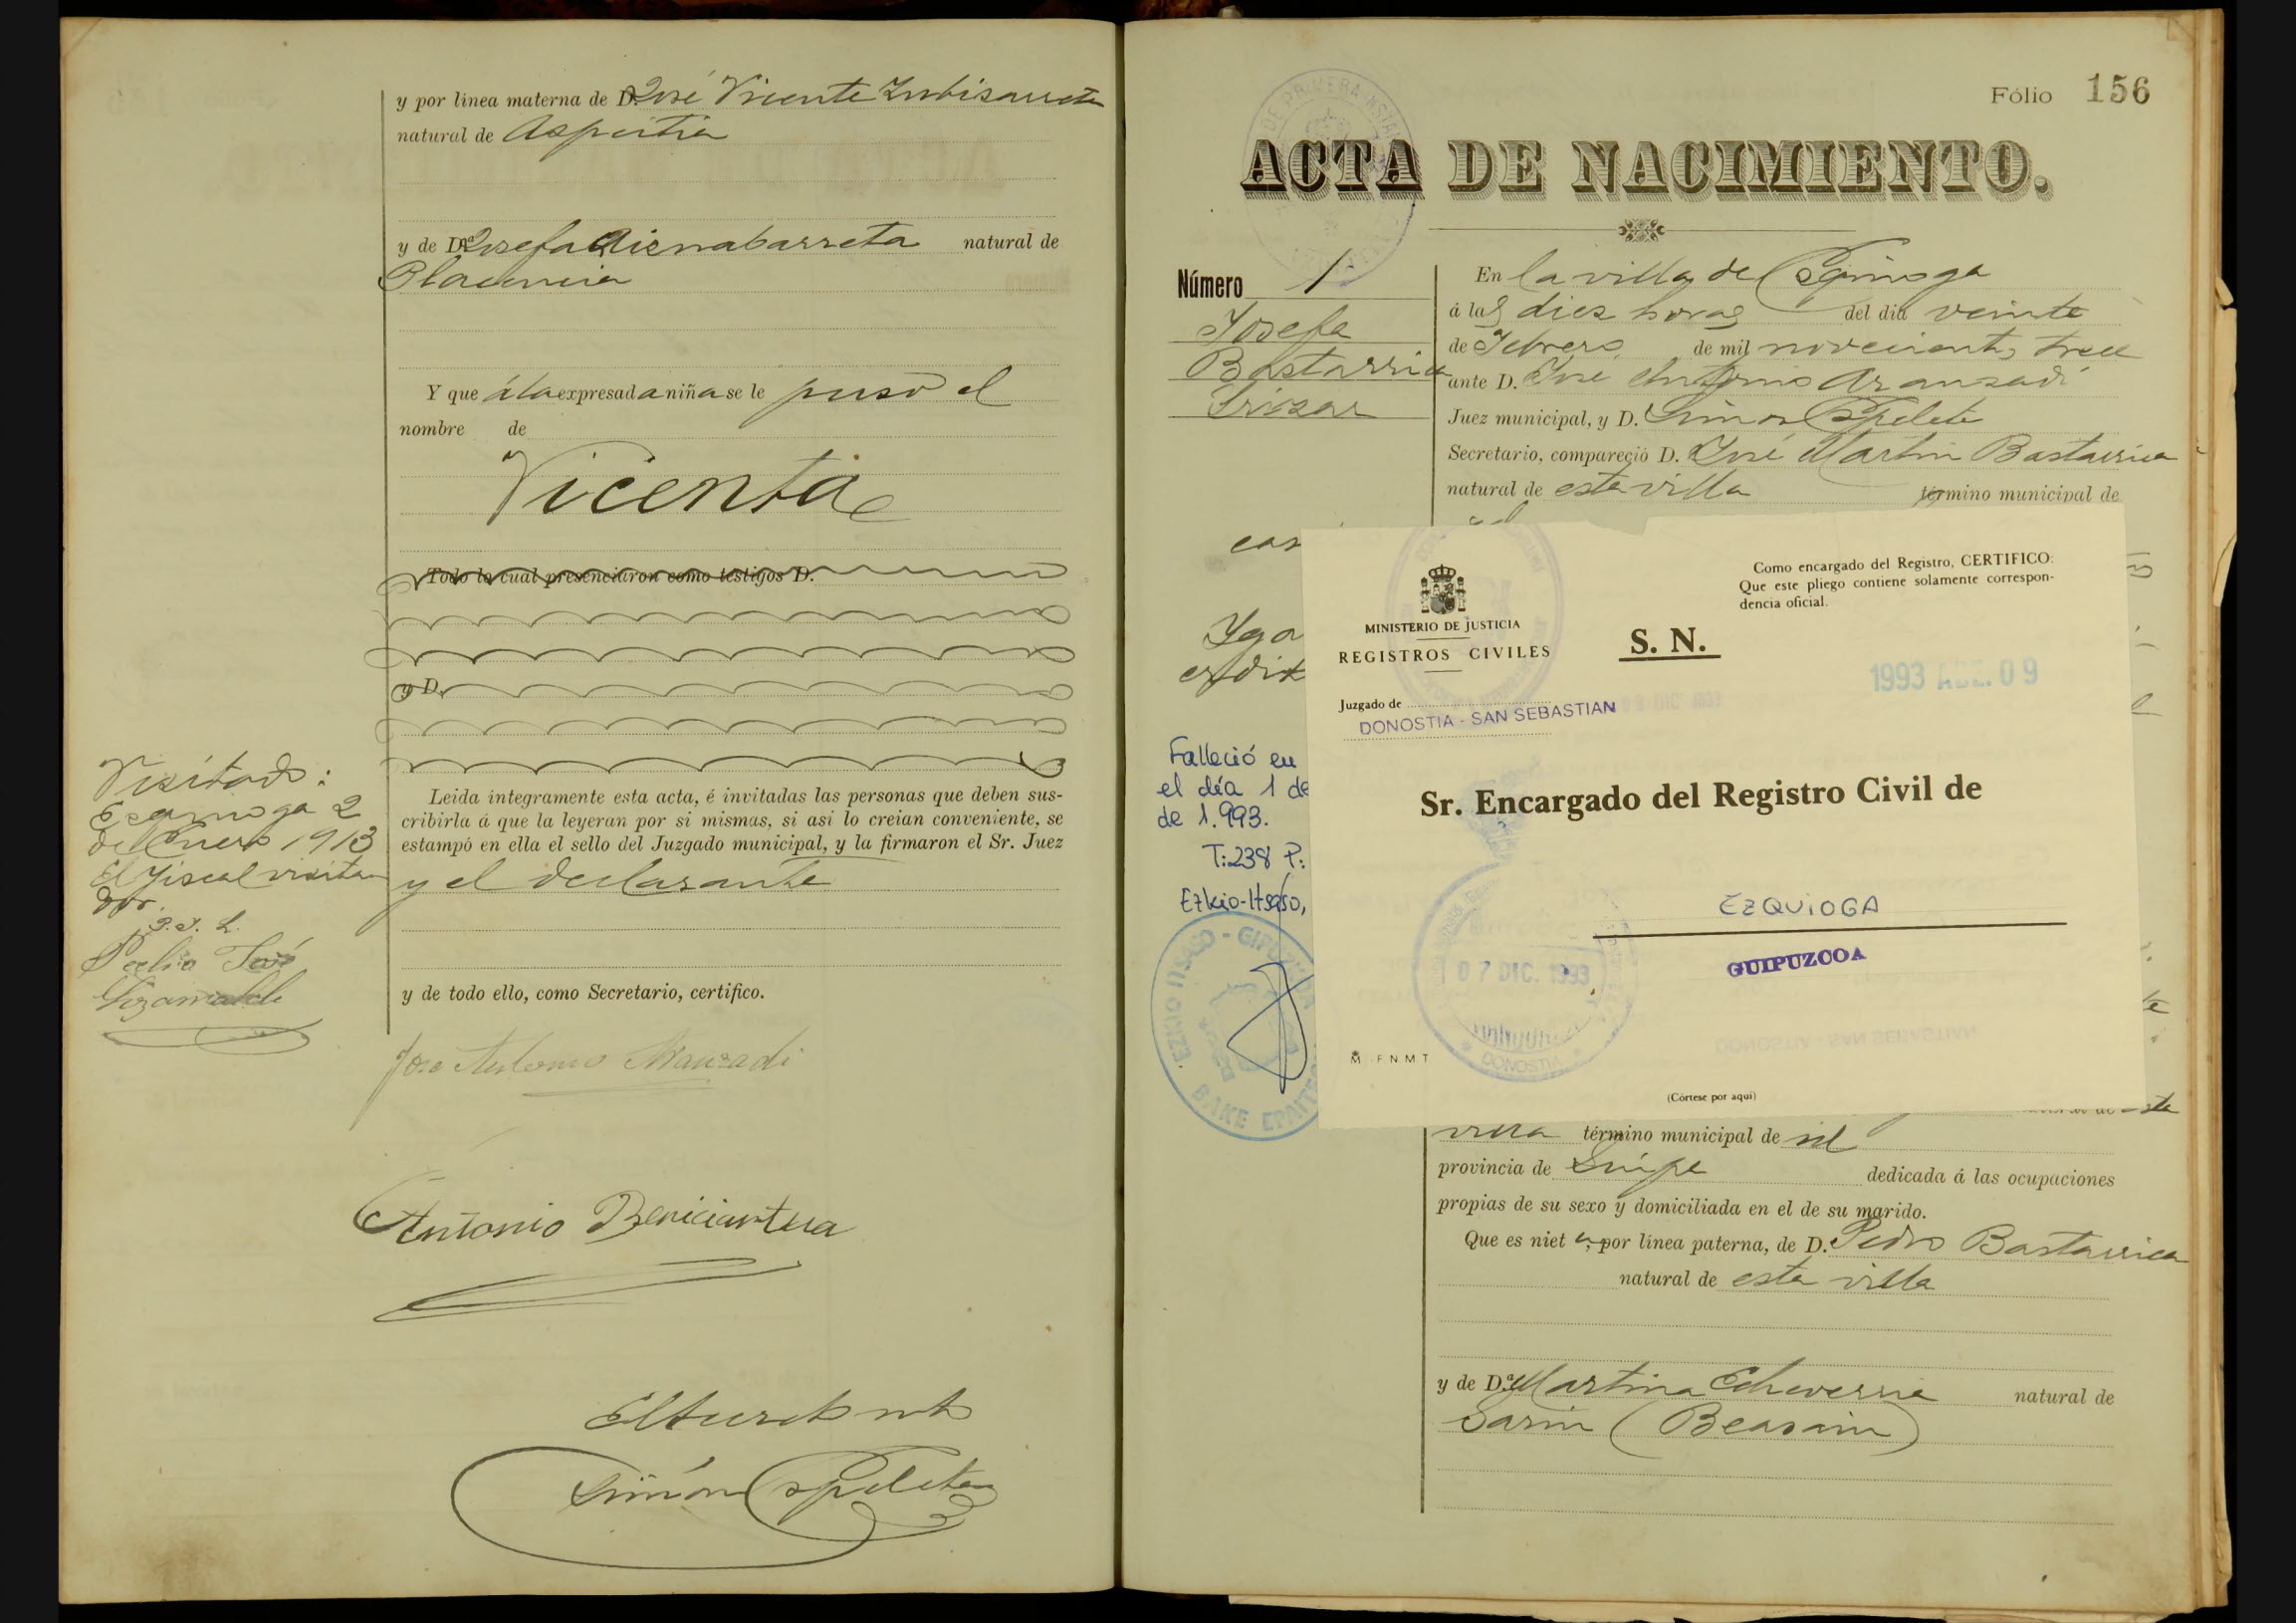 y por línea materna de D. José Vicente Zubizarreta
natural de Aspeitia
y de Dª Josefa natural de
Placencia
Y que á la expresada niña se le puso el
nombre de
Vicenta
Todo lo cual presenciaron como testigos D.
y D.
Leida íntegramente esta acta, é invitadas las personas que deben sus-
cribirla á que la leyeran por si mismas, si asi lo creian conveniente, se
estampó en ella el sello del Juzgado municipal, y la firmaron el Sr. Juez
y el declarante
y de todo ello, como Secretario, certifico.
José Antonio Aranzadi
Antonio
Simón Espeleta
Visitado:
Ezquioga 2
de Enero 1913
El Fiscal visita
dor.
P. I. L.
José
Fólio 156
ACTA DE NACIMIENTO.
Número 1
Josefa
Bastarrica
Irizar
En la villa de Ezquioga
á las diez horas del dia veinte
de Febrero de mil novecientos trece
ante D. José Antonio Aranzadi
Juez municipal, y D. Simon Espeleta
Secretario, compareció D. José Martin Bastarrica
natural de esta villa término municipal de
Falleció en
el día 1 de
de 1.993.
T:238 P:
Ezkio-Itsaso,
EZKIO ITSASO - GIPUZKOA
BAKE EPAITE
MINISTERIO DE JUSTICIA
REGISTROS CIVILES
Juzgado de
DONOSTIA - SAN SEBASTIAN
S. N.
Como encargado del Registro, CERTIFICO:
Que este pliego contiene solamente correspon-
dencia oficial.
1993 09
Sr. Encargado del Registro Civil de
EZQUIOGA
GUIPUZCOA
07 DIC. 1993
DONOSTIA
F N M T
(Córtese por aquí)
villa término municipal de id
provincia de Guipª dedicada á las ocupaciones
propias de su sexo y domiciliada en el de su marido.
Que es nieta, por línea paterna, de D. Pedro Bastarrica
natural de esta villa
y de D.ª Martina Echeverria natural de
(Beasain)